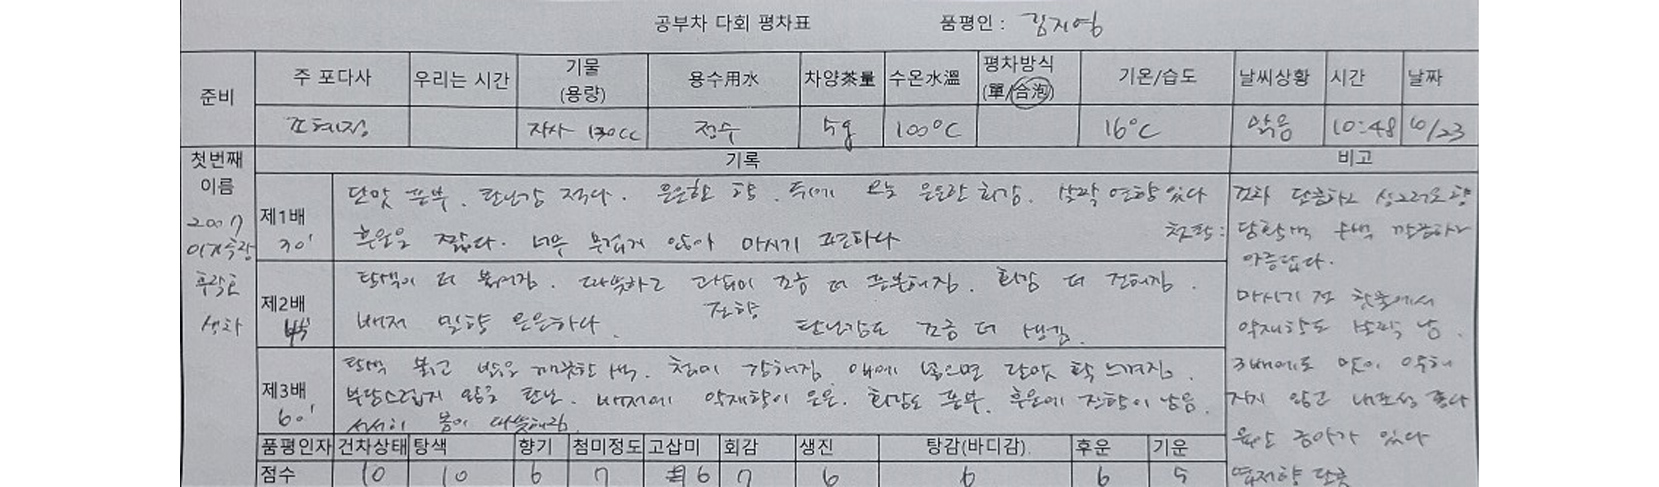 공부차 다회 평차표 품평인 : 김지영
준비 주 포다사 우리는 시간 기물 (용량) 용수用水 차양茶量 수온水溫 평차방식 (單/合泡) 기온/습도 날씨상황 시간 날짜
자사 130cc 정수 5g 100°C 16°C 맑음 10:48 /23
첫번째 이름 기록 비고
2007
생차
제1배 30'
단맛 풍부. 탄닌감 적다. 은은한 향. 뒤에 오는 은은한 회감. 살짝 연향 있다
후운은 짧다. 너무 무겁지 않아 마시기 편하다
제2배
탕색이 더 붉어짐. 따뜻하고 조금 더 풍부해짐. 회감 더 진해짐.
배저 밀향 은은하다. 탄닌감도 조금 더 생김.
제3배 60'
탕색 붉고 맑은 깨끗한 색. 첨미 강해짐 입에 넣으면 단맛 확 느껴짐.
부담스럽지 않은 탄닌. 배저에 약재향이 은은. 회감도 풍부. 후운에 진향이 남음.
서서히 몸이 따뜻해짐.
건차 단콤하고 싱그러운 향
깔끔하고
아름답다.
마시기 전 찻물에서
약재향도 살짝 남.
3배에도 맛이 약해
지지 않고 내포성 좋다
있다
엽저향 단콤
품평인자 건차상태 탕색 향기 첨미정도 고삽미 회감 생진 탕감(바디감). 후운 기운
점수 10 10 6 7 6 7 6 6 6 5